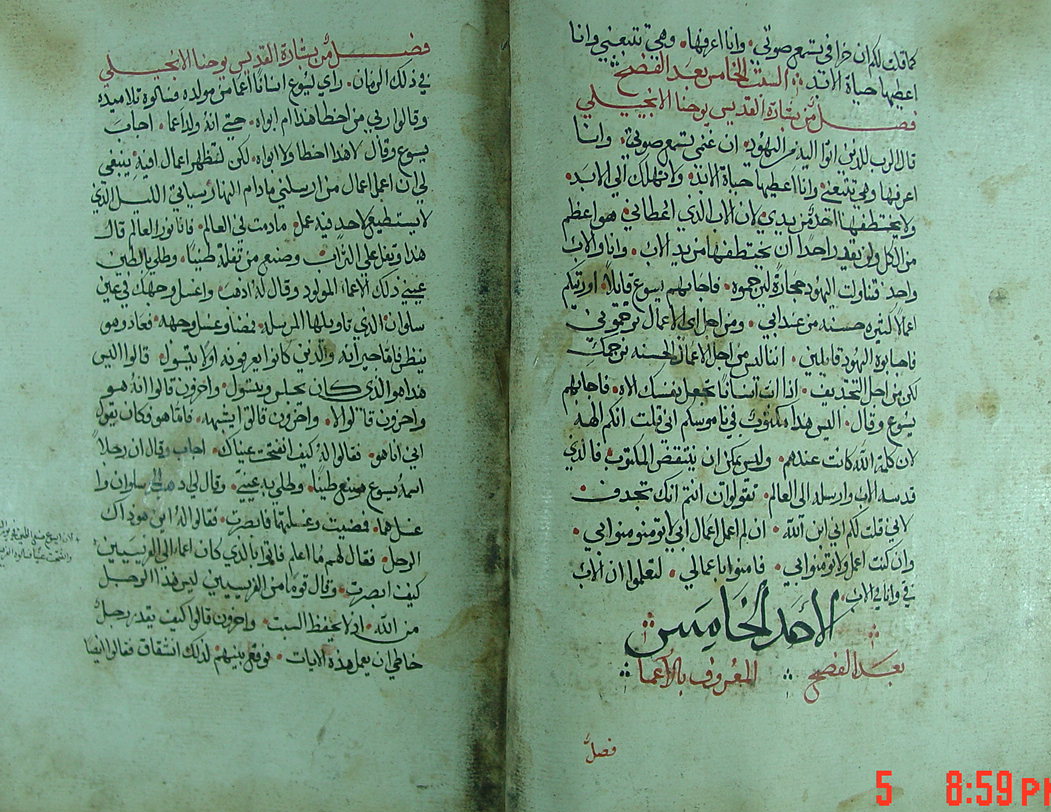 كما قلت لكم ان خرافي يسمع صوتي وانا اعرفها وهي تتبعني وانا
اعطيها حياة الابد السبت الخامس بعد الفصح
فصل من بشارة القديس يوحنا الانجيلي
قال الرب للذين اتوا اليه من اليهود ان غنمي يسمع صوتي وانا
اعرفها وهي تتبعني وانا اعطيها حياة الابد ولا تهلك الي الابد
ولا يختطفها احد من يدي لان الاب الذي اعطاني هو اعظم
من الكل ولن يقدر احدا ان يختطفها من يد الاب وانا والاب
واحد فتناولت اليهود حجارة لترجموه فاجابهم يسوع قايلا اوريتكم
اعمالا كثيره حسنه من عند ابي ومن اجل اي الاعمال ترجموني
فاجابوه اليهود قايلين اننا ليس من اجل الاعمال الحسنه نرجمك
لكن من اجل التجديف اذ انت انسانا تجعل نفسك الاه فاجابهم
يسوع وقال اليس هذا مكتوب في ناموسكم اني قلت انكم الهه
لان كلمة الله كانت عندهم وليس يمكن ان ينتقض المكتوب فالذي
قدسه الاب وارسله الي العالم تقولون انتم انك تجدف
لاني قلت لكم اني ابن الله ان لم اعمل اعمال ابي لا تومنوا بي
وان كنت اعمل ولا تومنوا بي فامنوا باعمالي لتعلموا ان الاب
في وانا في الاب
الاحد الخامس
بعد الفصح المعروف بالاعما
فصل
فصل من بشارة القديس يوحنا الانجيلي
في ذلك الزمان راي يسوع انسانا اعما من مولده فسالوه تلاميذه
وقالوا ربي من اخطا هذا ام ابواه حتي انه ولد اعما اجاب
يسوع وقال لا هذا اخطا ولا ابواه لكن لتظهر اعمال الله فيه ينبغي
لي ان اعمل اعمال من ارسلني ما دام النهار سياتي الليل الذي
لا يستطيع احد فيه عمل ما دمت في العالم فانا نور العالم قال
هذا وتفل علي التراب وصنع من تفلة طينا وطلي بالطين
عيني ذلك الاعما المولود وقال له اذهب واغسل وجهك في عين
سلوان الذي تاويلها المرسله فمضا وغسل وجهه فعاد وهو
ينظر فاما جيرانه والذين كانوا يعرفونه اولا يتسول قالوا اليس
هذا هو الذي كان يجلس ويتسول واخرون قالوا انه هو
واخرون قالوا لا واخرون قالوا يشبهه فاما هو فكان يقول
اني انا هو فقالوا له كيف انفتحت عيناك اجاب وقال ان رجلا
اسمه يسوع صنع طينا وطلي به عيني وقال لي اذهب الي سلوان وا
غسلهما فمضيت وغسلتها فابصرت فقالوا له اين هو ذاك
الرجل فقال لهم ما اعلم فاتوا بالذي كان اعما الي الفريسيين
كيف ابصرت وقال قوم من الفريسيين ليس هذا الرجل
من الله اذ لا يحفظ السبت واخرون قالوا كيف يقدر رجل
خاطي ان يعمل هذه الايات فوقع بينهم لذلك انشقاق فقالوا ايضا
5 8:59 PM